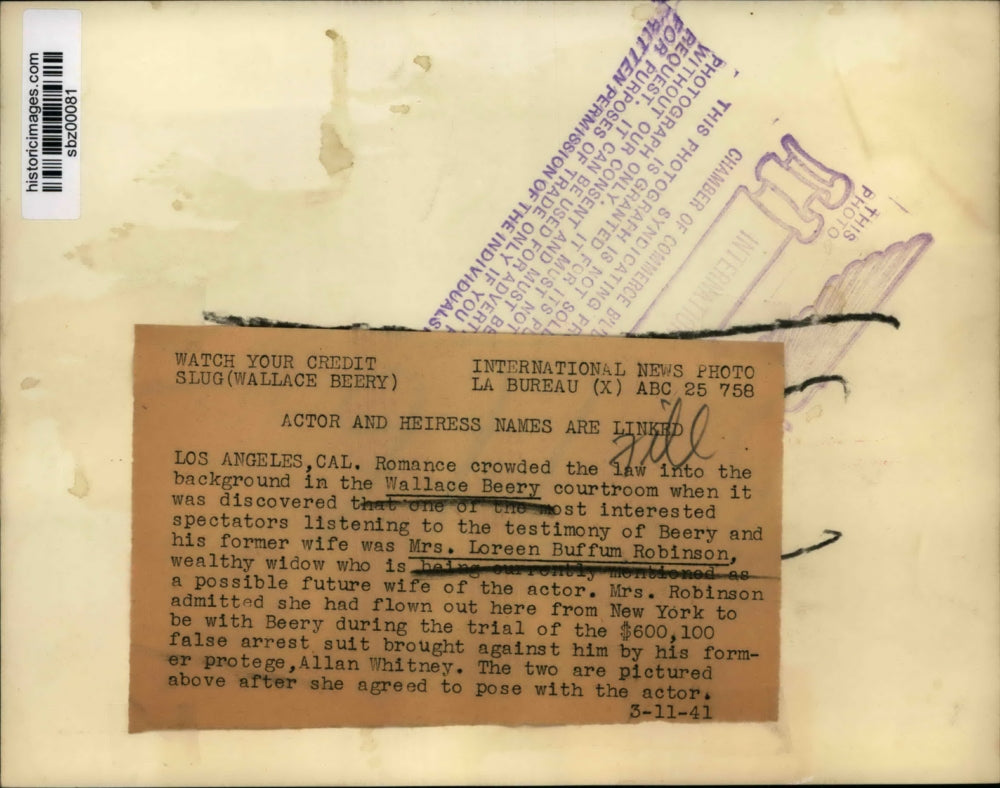 historicimages.com
sbz00081
PHOTOGRAPH
WITHOUT OUR CONSENT AND MUST NOT
REQUEST. IT CAN BE USED FOR ADVERT
FOR PURPOSES OF TRADE ONLY IF YOU
WRITTEN PERMISSION OF THE INDIVIDUALS
THIS PHOTOGRAPH IS NOT SOL
SYNDICATING
CHAMBER OF COMMERCE
INTERNATIO
THIS
PHOTO
WATCH YOUR CREDIT
SLUG(WALLACE BEERY)
INTERNATIONAL NEWS PHOTO
LA BUREAU (X) ABC 25 758
ACTOR AND HEIRESS NAMES ARE LINKED
LOS ANGELES,CAL. Romance crowded the law into the
background in the Wallace Beery courtroom when it
was discovered that one of the most interested
spectators listening to the testimony of Beery and
his former wife was Mrs. Loreen Buffum Robinson,
wealthy widow who is being currently mentioned as
a possible future wife of the actor. Mrs. Robinson
admitted she had flown out here from New York to
be with Beery during the trial of the $600,100
false arrest suit brought against him by his form-
er protege,Allan Whitney. The two are pictured
above after she agreed to pose with the actor.
3-11-41